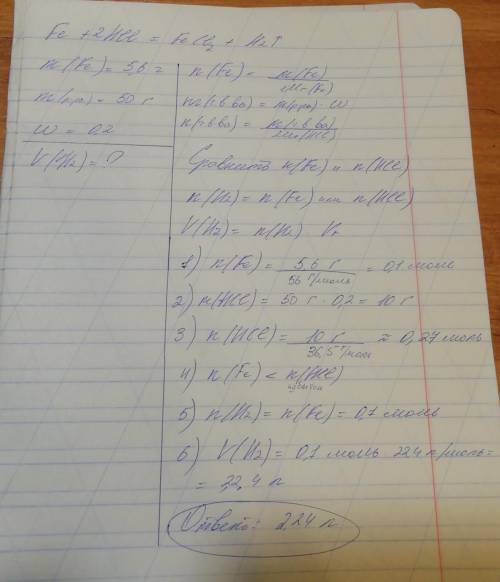 Fe + 2HCl = FeCl2 + H2↑
m(Fe) = 5,6 г
m(р-ра) = 50 г
w = 0,2
V(H2) = ?
n(Fe) = m(Fe) / Mr(Fe)
m(в-ва) = m(р-ра) · w
n(в-ва) = m(в-ва) / Mr(HCl)
Сравнить n(Fe) и n(HCl)
n(H2) = n(Fe) или n(HCl)
V(H2) = n(H2) Vr
1) n(Fe) = 5,6 г / 56 г/моль = 0,1 моль
2) m(HCl) = 50 г · 0,2 = 10 г
3) n(HCl) = 10 г / 36,5 г/моль ≈ 0,27 моль
4) n(Fe) < n(HCl)
избыток
5) n(H2) = n(Fe) = 0,1 моль
6) V(H2) = 0,1 моль 22,4 л/моль =
= 2,2.4 л
Ответ: 2,24 л